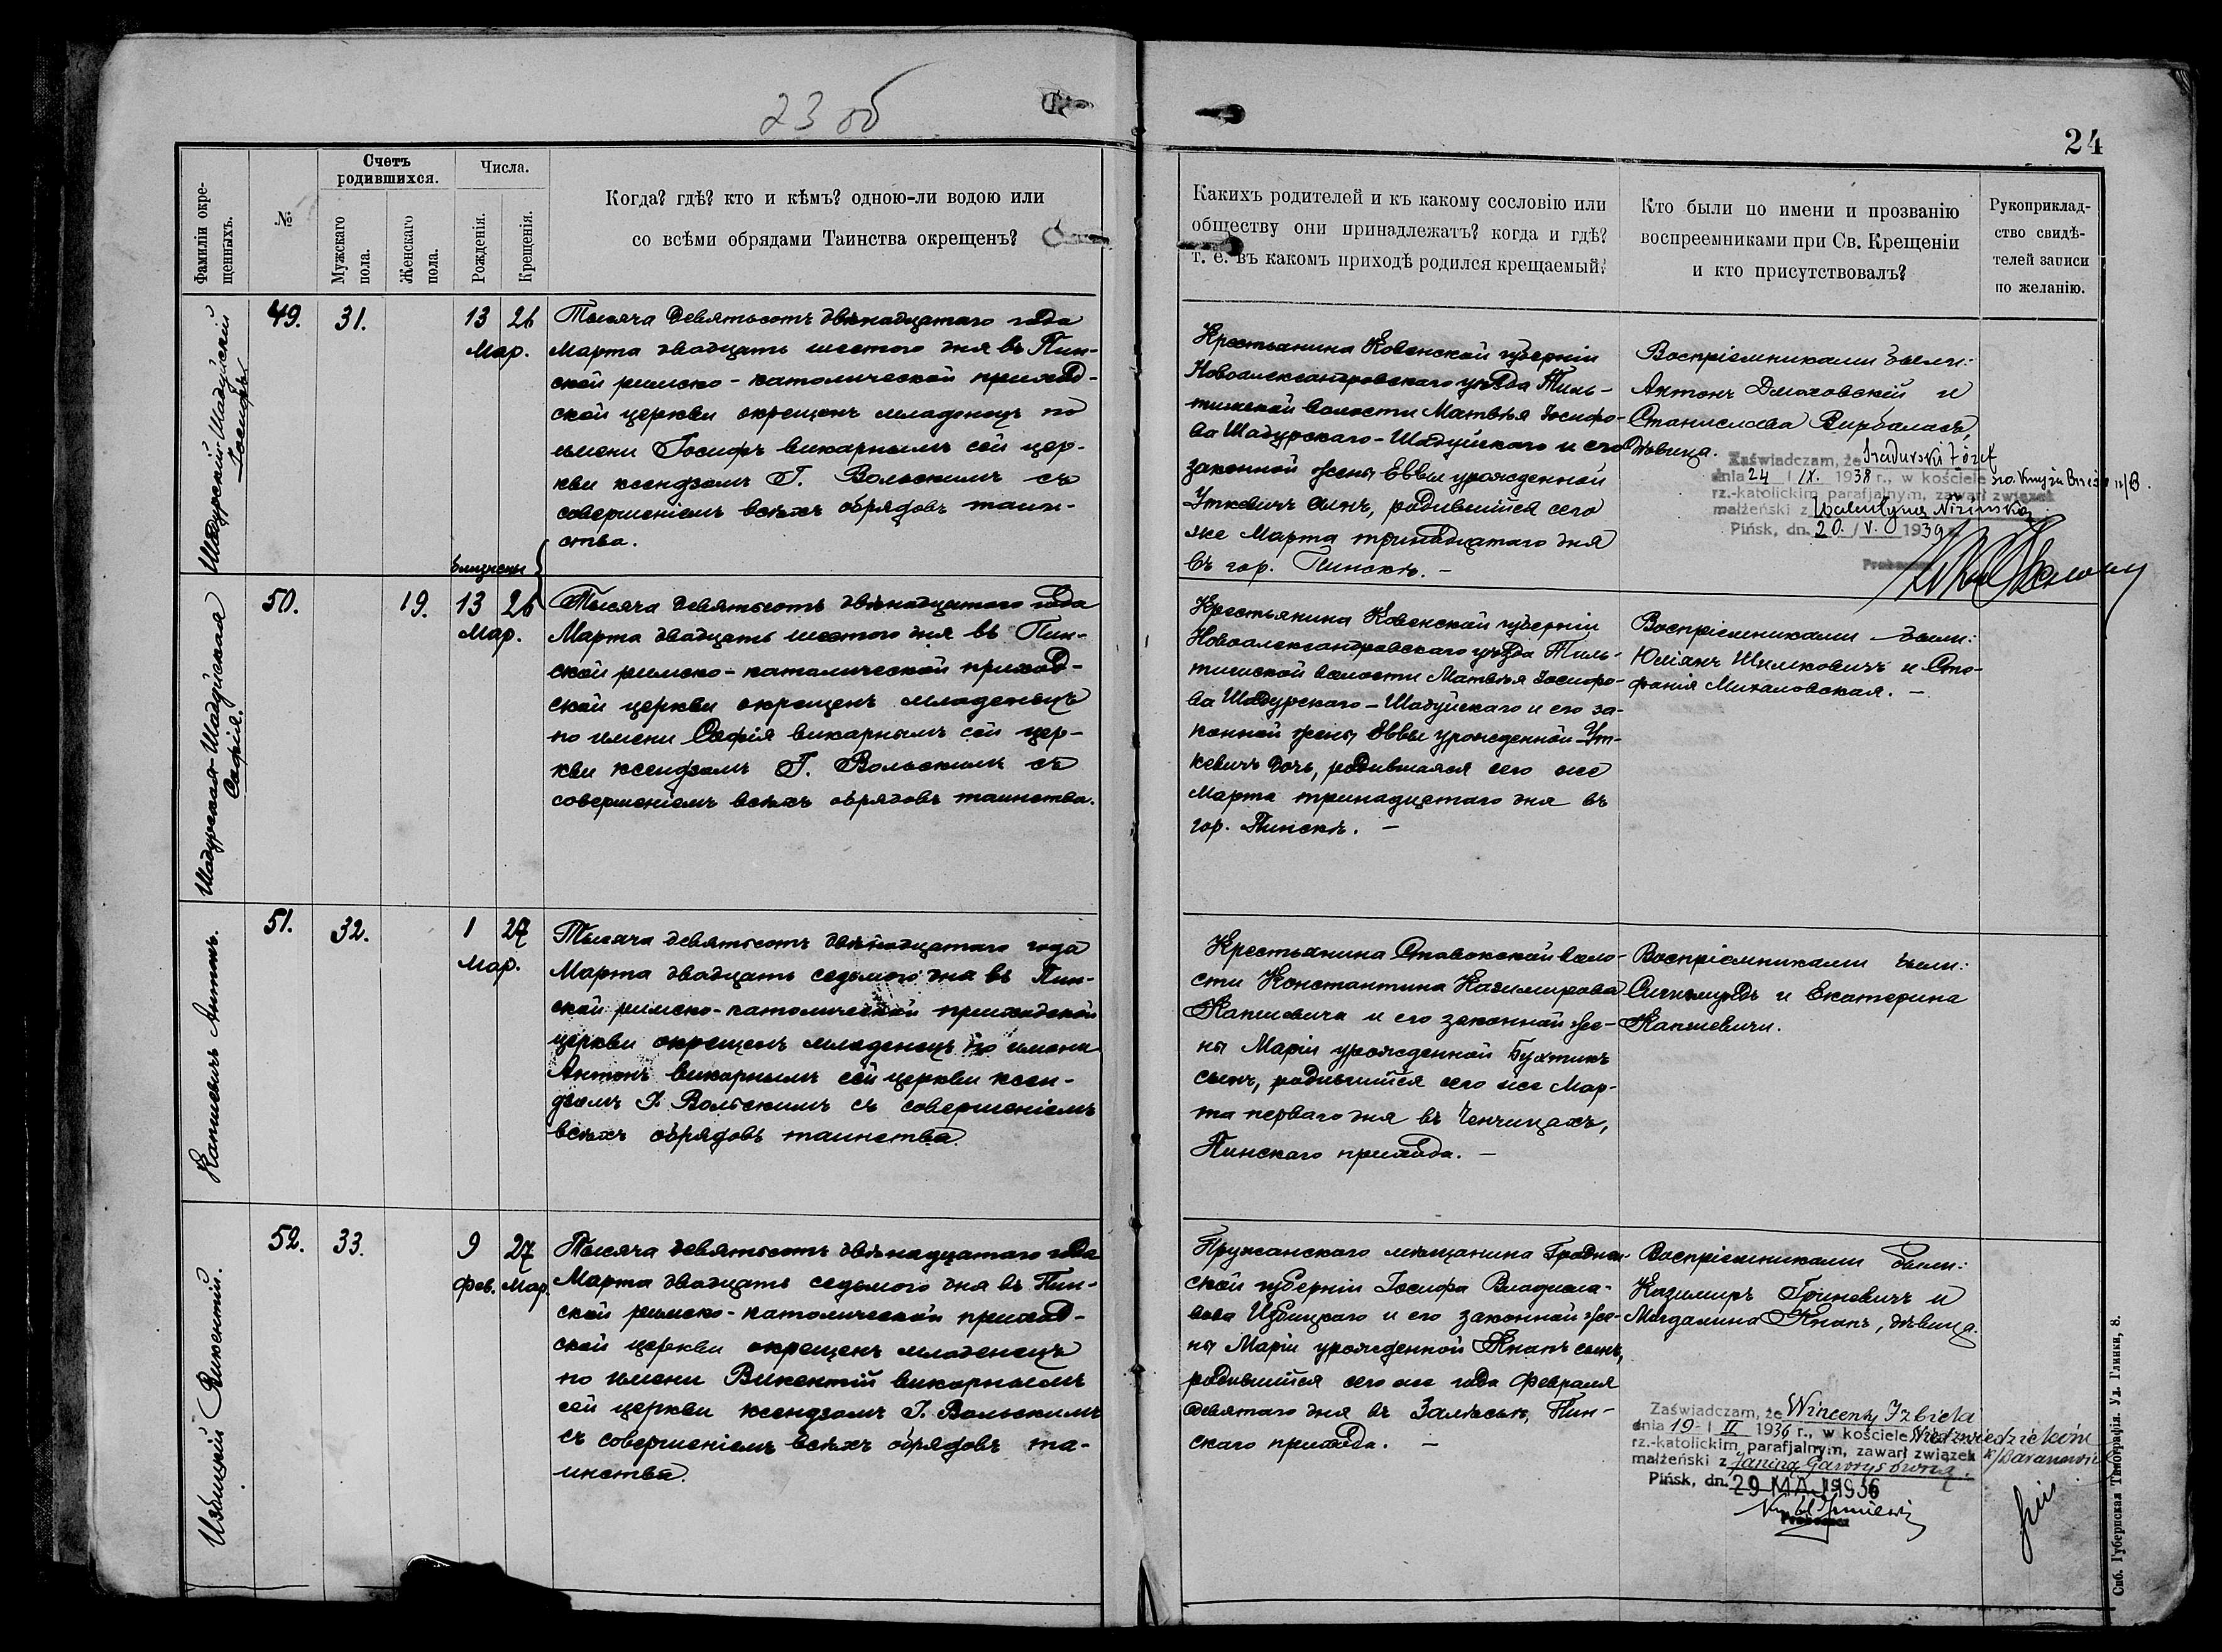 23 об
24
Фамиліи окрещенныхъ.
№
Счетъ родившихся.
Мужскаго пола.
Женскаго пола.
Числа.
Рожденія.
Крещенія.
Когда? гдѣ? кто и кѣмъ? одною-ли водою или
со всѣми обрядами Таинства окрещенъ?
Какихъ родителей и къ какому сословію или
обществу они принадлежатъ? когда и гдѣ?
т. е. въ какомъ приходѣ родился крещаемый?
Кто были по имени и прозванію
воспреемниками при Св. Крещеніи
и кто присутствовалъ?
Рукоприклад-
ство свидѣ-
телей записи
по желанію.
Шадурскій-Шадуйскій
Іосифъ
49.
31.
13 26
Мар.
Тысяча девятьсотъ двѣнадцатаго года
Марта двадцать шестого дня въ Пин-
ской римско-католической приход-
ской церкви окрещенъ младенецъ по
имени Іосифъ викарнымъ сей цер-
кви ксендзомъ І. Вольскимъ съ
совершеніемъ всѣхъ обрядовъ таин-
ства.
Крестьянина Ковенской губерніи
Новоалександровскаго уѣзда Тиль-
тишской волости Матвѣя Іосифо-
ва Шадурскаго-Шадуйскаго и его
законной жены Еввы урожденной
Уткевичъ сынъ, родившійся сего
же Марта тринадцатаго дня
въ гор. Пинскѣ. –
Воспріемниками были:
Антонъ Дмоховскій и
Станислава Вирбаласъ,
дѣвица.
Zaświadczam, że Szadurski Józef
dnia 24 / IX. 1938 r., w kościele
rz.-katolickim parafjalnym, zawarł związek
małżeński z Walentyną
Pińsk, dn. 20. / V. 1939 r.
Proboszcz
близнецы
Шадурская-Шадуйская
Софія.
50.
19.
13 26
Мар.
Тысяча девятьсотъ двѣнадцатаго года
Марта двадцать шестого дня въ Пин-
ской римско-католической приход-
ской церкви окрещенъ младенецъ
по имени Софія викарнымъ сей цер-
кви ксендзомъ І. Вольскимъ съ
совершеніемъ всѣхъ обрядовъ таинства.
Крестьянина Ковенской губерніи
Новоалександровскаго уѣзда Тиль-
тишской волости Матвѣя Іосифо-
ва Шадурскаго-Шадуйскаго и его за-
конной жены Еввы урожденной Ут-
кевичъ дочь, родившаяся сего же
Марта тринадцатаго дня въ
гор. Пинскѣ. –
Воспріемниками были:
Юліанъ Шимковичъ и Сте-
фанія Михаловская. –
Капшевичъ Антонъ.
51.
32.
1 27
Мар.
Тысяча девятьсотъ двѣнадцатаго года
Марта двадцать седьмого дня въ Пин-
ской римско-католической приходской
церкви окрещенъ младенецъ по имени
Антонъ викарнымъ сей церкви ксен-
дзомъ І. Вольскимъ съ совершеніемъ
всѣхъ обрядовъ таинства.
Крестьянина Ставокской воло-
сти Константина Казимирова
Капшевича и его законной же-
ны Маріи урожденной Бухтикъ
сынъ, родившійся сего же Мар-
та перваго дня въ Ченчицахъ,
Пинскаго прихода. –
Воспріемниками были:
Сигизмундъ и Екатерина
Капшевичи.
Избицкій Викентій.
52.
33.
9 27
Фев. Мар.
Тысяча девятьсотъ двѣнадцатаго года
Марта двадцать седьмого дня въ Пин-
ской римско-католической приход-
ской церкви окрещенъ младенецъ
по имени Викентій викарнымъ
сей церкви ксендзомъ І. Вольскимъ
съ совершеніемъ всѣхъ обрядовъ та-
инства.
Пружанскаго мѣщанина Гроднен-
ской губерніи Іосифа Владисла-
вова Избицкаго и его законной же-
ны Маріи урожденной Кнапъ сынъ,
родившійся сего же года Февраля
девятаго дня въ Залѣсьѣ, Пин-
скаго прихода. –
Воспріемниками были:
Казимиръ Гриневичъ и
Магдалина Кнапъ, дѣвица.
Zaświadczam, że Wincenty Izbicki
dnia 19 / II 1936 r., w kościele
rz.-katolickim parafjalnym, zawarł związek
małżeński z Janiną
Pińsk, dn. 29 MAJ 1936
Proboszcz
Спб. Губернская Типографія. Ул. Глинки, 8.